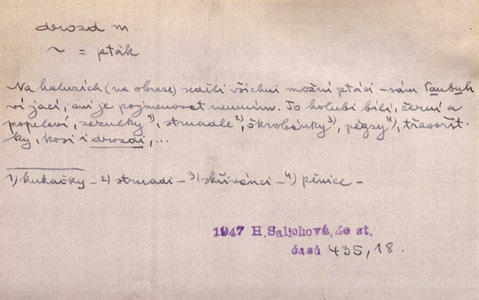 drozd m.
~ = pták
Na haluzích (na obraze) seděli všichni možní ptáci – sám
ví jací, ani je pojmenovat neumím. To holubi bílí, černí a
popelaví, zezulky 1), strnadle 2), škrobánky 3), pěgzy 4), třasořit-
ky, kosi i drozdi,...
1) kukačky – 2) strnadi – 3) skřivánci – 4) pěnice –
1947 H. Salichová, Ze st.
časů 435, 18.